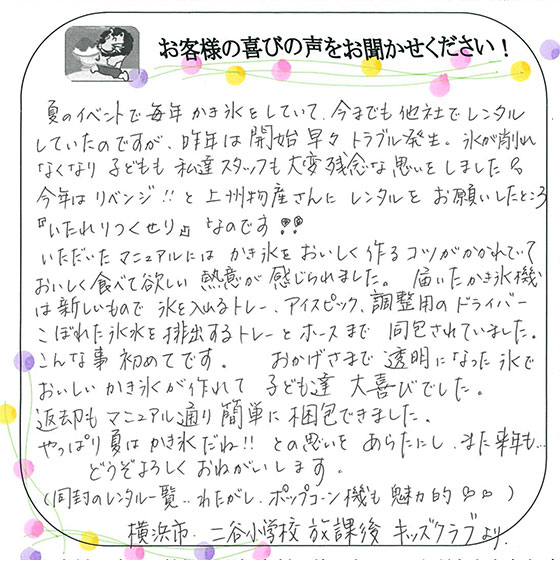 お客様の喜びの声をお聞かせください！
夏のイベントで毎年かき氷をしていて、今までも他社でレンタル
していたのですが、昨年は開始早々トラブル発生。氷が削れ
なくなり子どもも私達スタッフも大変残念な思いをしました。
今年はリベンジ!!と上州物産さんにレンタルをお願いしたところ
『いたれりつくせり』なのです!!
いただいたマニュアルにはかき氷をおいしく作るコツがかかれていて
おいしく食べて欲しい熱意が感じられました。届いたかき氷機
は新しいもので氷を入れるトレー、アイスピック、調整用のドライバー
こぼれた氷水を排出するトレーとホースまで同包されていました。
こんな事初めてです。おかげさまで透明になった氷で
おいしいかき氷が作れて子ども達大喜びでした。
返却もマニュアル通り簡単に梱包できました。
やっぱり夏はかき氷だね!!との思いをあらたにし、また来年も…
どうぞよろしくおねがいします。
(同封のレンタル一覧..わたがし、ポップコーン機も魅力的♡♡)
横浜市 二谷小学校 放課後キッズクラブより.